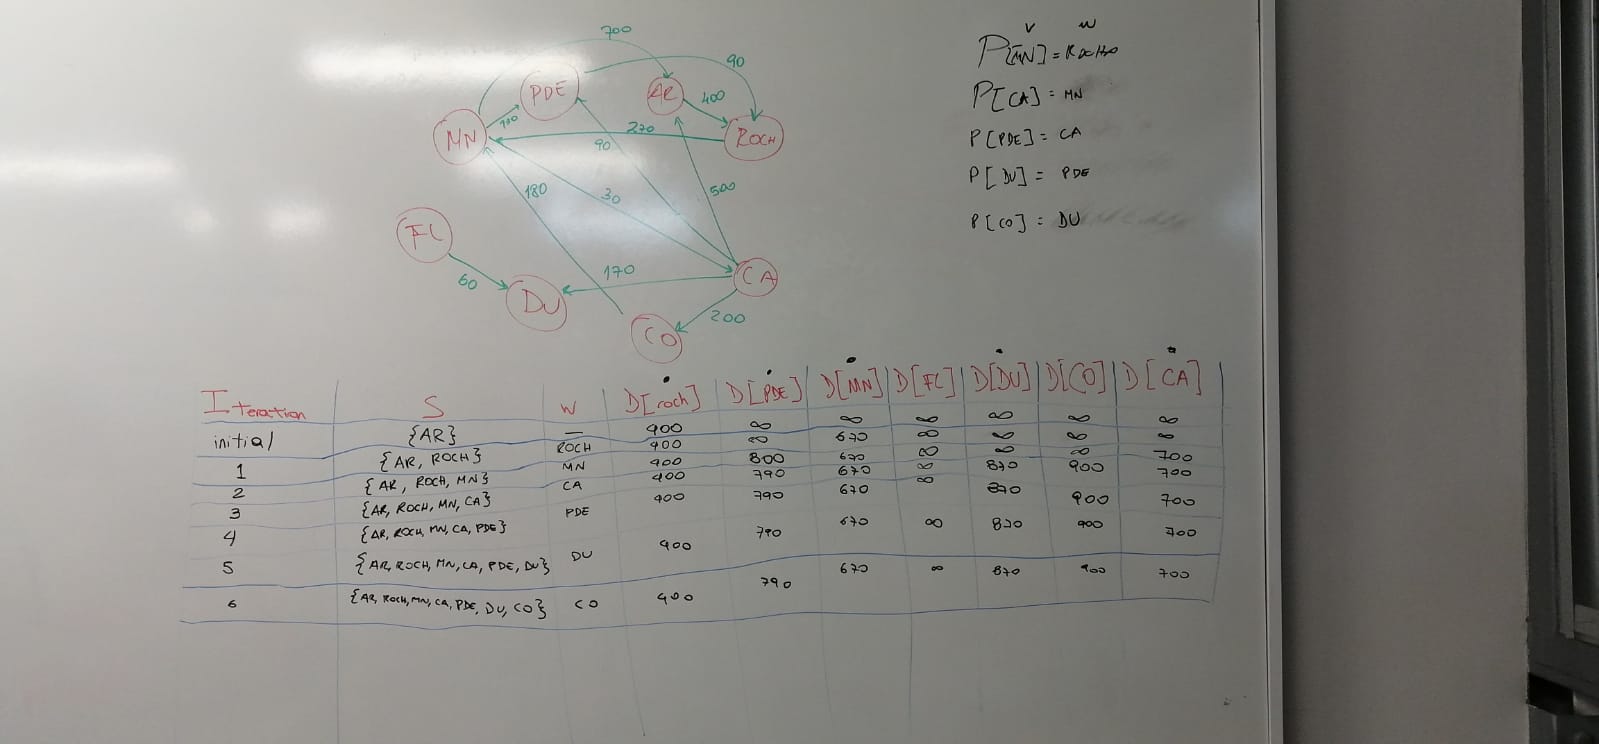 700
90
PDE
AR
400
100
MN
270
ROCH
90
180
30
500
FL
170
CA
60
DU
200
CO
V W
P[MN] = ROCH
P[CA] = MN
P[PDE] = CA
P[DU] = PDE
P[CO] = DU
Iteration S W D[roch] D[PDE] D[MN] D[FL] D[DU] D[CO] D[CA]
initial {AR} — 400 ∞ ∞ ∞ ∞ ∞ ∞
1 {AR, ROCH} ROCH 400 ∞ 670 ∞ ∞ ∞ ∞
2 {AR, ROCH, MN} MN 400 800 670 ∞ ∞ ∞ 700
3 {AR, ROCH, MN, CA} CA 400 790 670 ∞ 870 900 700
4 {AR, ROCH, MN, CA, PDE} PDE 400 790 670 870 900 700
5 {AR, ROCH, MN, CA, PDE, DU} DU 400 790 670 ∞ 870 900 700
6 {AR, ROCH, MN, CA, PDE, DU, CO} CO 400 790 670 ∞ 870 900 700